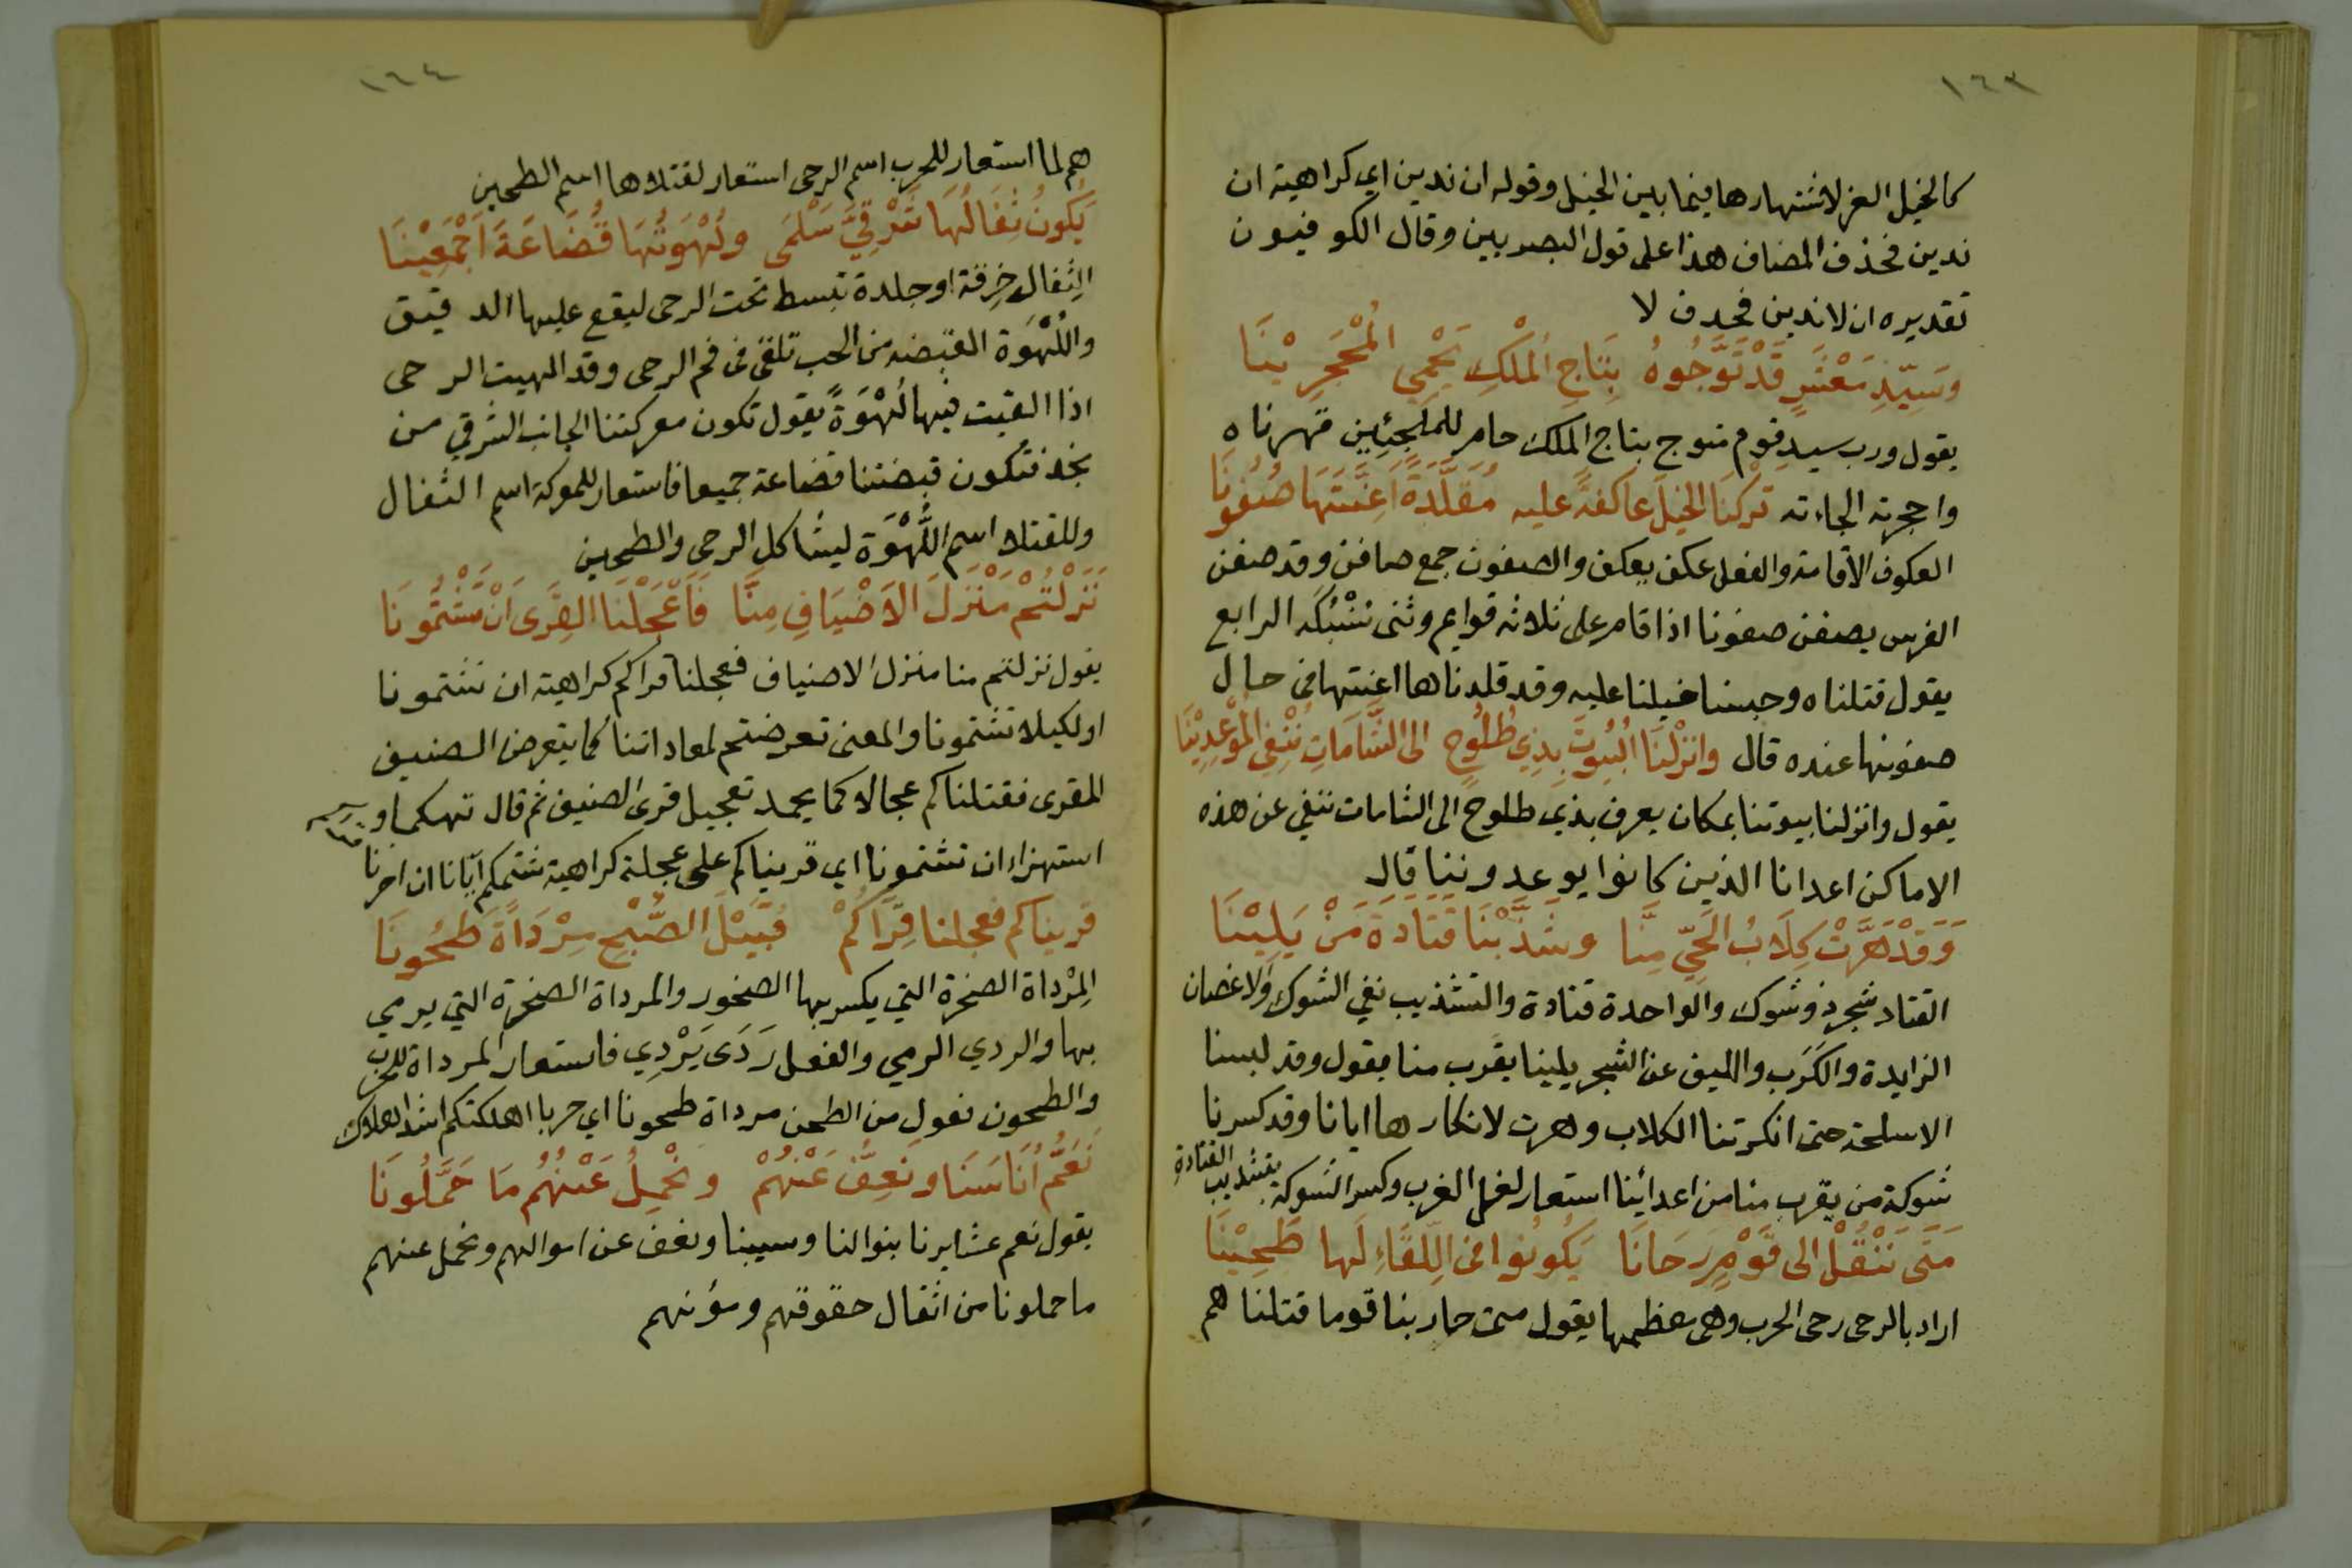 ١٦٣
كالخيل الغر لاشتهارها فيما بين الخيل وقوله ان ندين اي كراهية ان
ندين فحذف المضاف هذا على قول البصريين وقال الكوفيون
تقديره ان لا ندين فحذف لا
وَسَيِّدِ مَعْشَرٍ قَدْ تَوَّجُوهُ بِتَاجِ المُلْكِ يَحْمِي المُحْجَرِيْنَا
يقول ورب سيد قوم متوج بتاج الملك حام للملجئين قهرناه
واحجرته الجاءته تَرَكْنَا الخيلَ عاكفةً عليه مُقَلَّدَةً اَعِنَّتَهَا صُفُونَا
العكوف الاقامة والفعل عكف يعكف والصفون جمع صافن وقد صفن
الفرس يصفن صفونا اذا قام على ثلاثه قوايم وثنى سُنْبُكَه الرابع
يقول قتلناه وحبسنا خيلنا عليه وقد قلدناها اعنتها في حال
صفونها عنده قال وانزلْنَا البُيُوتَ بِذِي طُلُوحٍ الى الشَّامَاتِ نَنْفِي المُوْعِدِيْنَا
يقول وانزلنا بيوتنا بمكان يعرف بذي طلوح الى الشامات ننفي عن هذه
الاماكن اعدانا الذين كانوا يوعدوننا قال
وَقَدْ هَرَّتْ كِلَابُ الحَيِّ مِنَّا وشَذَّبْنَا قَتَادَةَ مَنْ يَلِيْنَا
القتاد شجر ذو شوك والواحدة قتادة والتشذيب نفي الشوك والاغصان
الزايدة والكَرَب والليف عن الشجر يلينا يقرب منا يقول وقد لبسنا
الاسلحة حتى انكرتنا الكلاب وهرت لانكارها ايانا وقد كسرنا
شوكة من يقرب منا من اعدائنا استعار لفل الغرب وكسر الشوكة بتشذيب القتادة
مَتَى نَنْقُلْ الى قَوْمٍ رَحَانَا يَكُونُوا في اللِّقَاءِ لَها طَحِيْنَا
اراد بالرحى رحى الحرب وهي معظمها يقول متى حاربنا قوما قتلنا هم
١٦٤
هم لما استعار للحرب اسم الرحى استعار لقتلاها اسم الطحين
يَكونُ ثِفَالُهَا شَرْقِيَّ سَلْمَى ولُهْوَتُهَا قُضَاعَةَ اَجْمَعِيْنَا
الثِفال خِرقة او جلدة تبسط تحت الرحى ليقع عليها الدقيق
واللُهْوَة القبضه من الحب تلقى في فم الرحى وقد الهيت الرحى
اذا القيت فيها لُهْوَةً يقول تكون معركتنا الجانب الشرقي من
نجد فتكون قبضتنا قضاعة جميعا فاستعار للمعركة اسم الثفال
وللقتلا اسم اللُّهْوَة ليشاكل الرحى والطحين
نَزَلْتُمْ مَنْزِلَ الاَضْيَافِ مِنَّا فَاَعْجَلْنَا القِرَى اَنْ تَشْتُمُونَا
يقول نزلتم منا منزل الاضياف فعجلنا قراكم كراهية ان تشتمونا
او لكيلا تشتمونا والمعنى تعرضتم لمعاداتنا كما يتعرض الضيف
للقرى فقتلناكم عجالا كما يحمد تعجيل قرى الضيف ثم قال تهكما و
استهزاء ان تشتمونا اي قريناكم على عجلة كراهية شتمكم ايانا ان اخرنا
قريناكم فعجلنا قِرَاكُمْ قُبَيْلَ الصُّبْحِ مِرْدَاةً طَحُونَا
المِرْداة الصخرة التي يكسر بها الصخور والمرداة الصخرة التي يرمي
بها والردي الرمي والفعل رَدَى يَرْدِي فاستعار المرداة للحرب
والطحون فعول من الطحن مرداة طحونا اي حربا اهلكتكم اشد الهلاك
نَعُمُّ اُنَاسَنَا ونَعِفُّ عَنْهُمْ ونَحْمِلُ عَنْهُمُ مَا حَمَّلُونَا
يقول نعم عشايرنا بنوالنا وسيبنا ونعف عن اموالهم ونحمل عنهم
ما حملونا من اثقال حقوقهم ومؤنهم